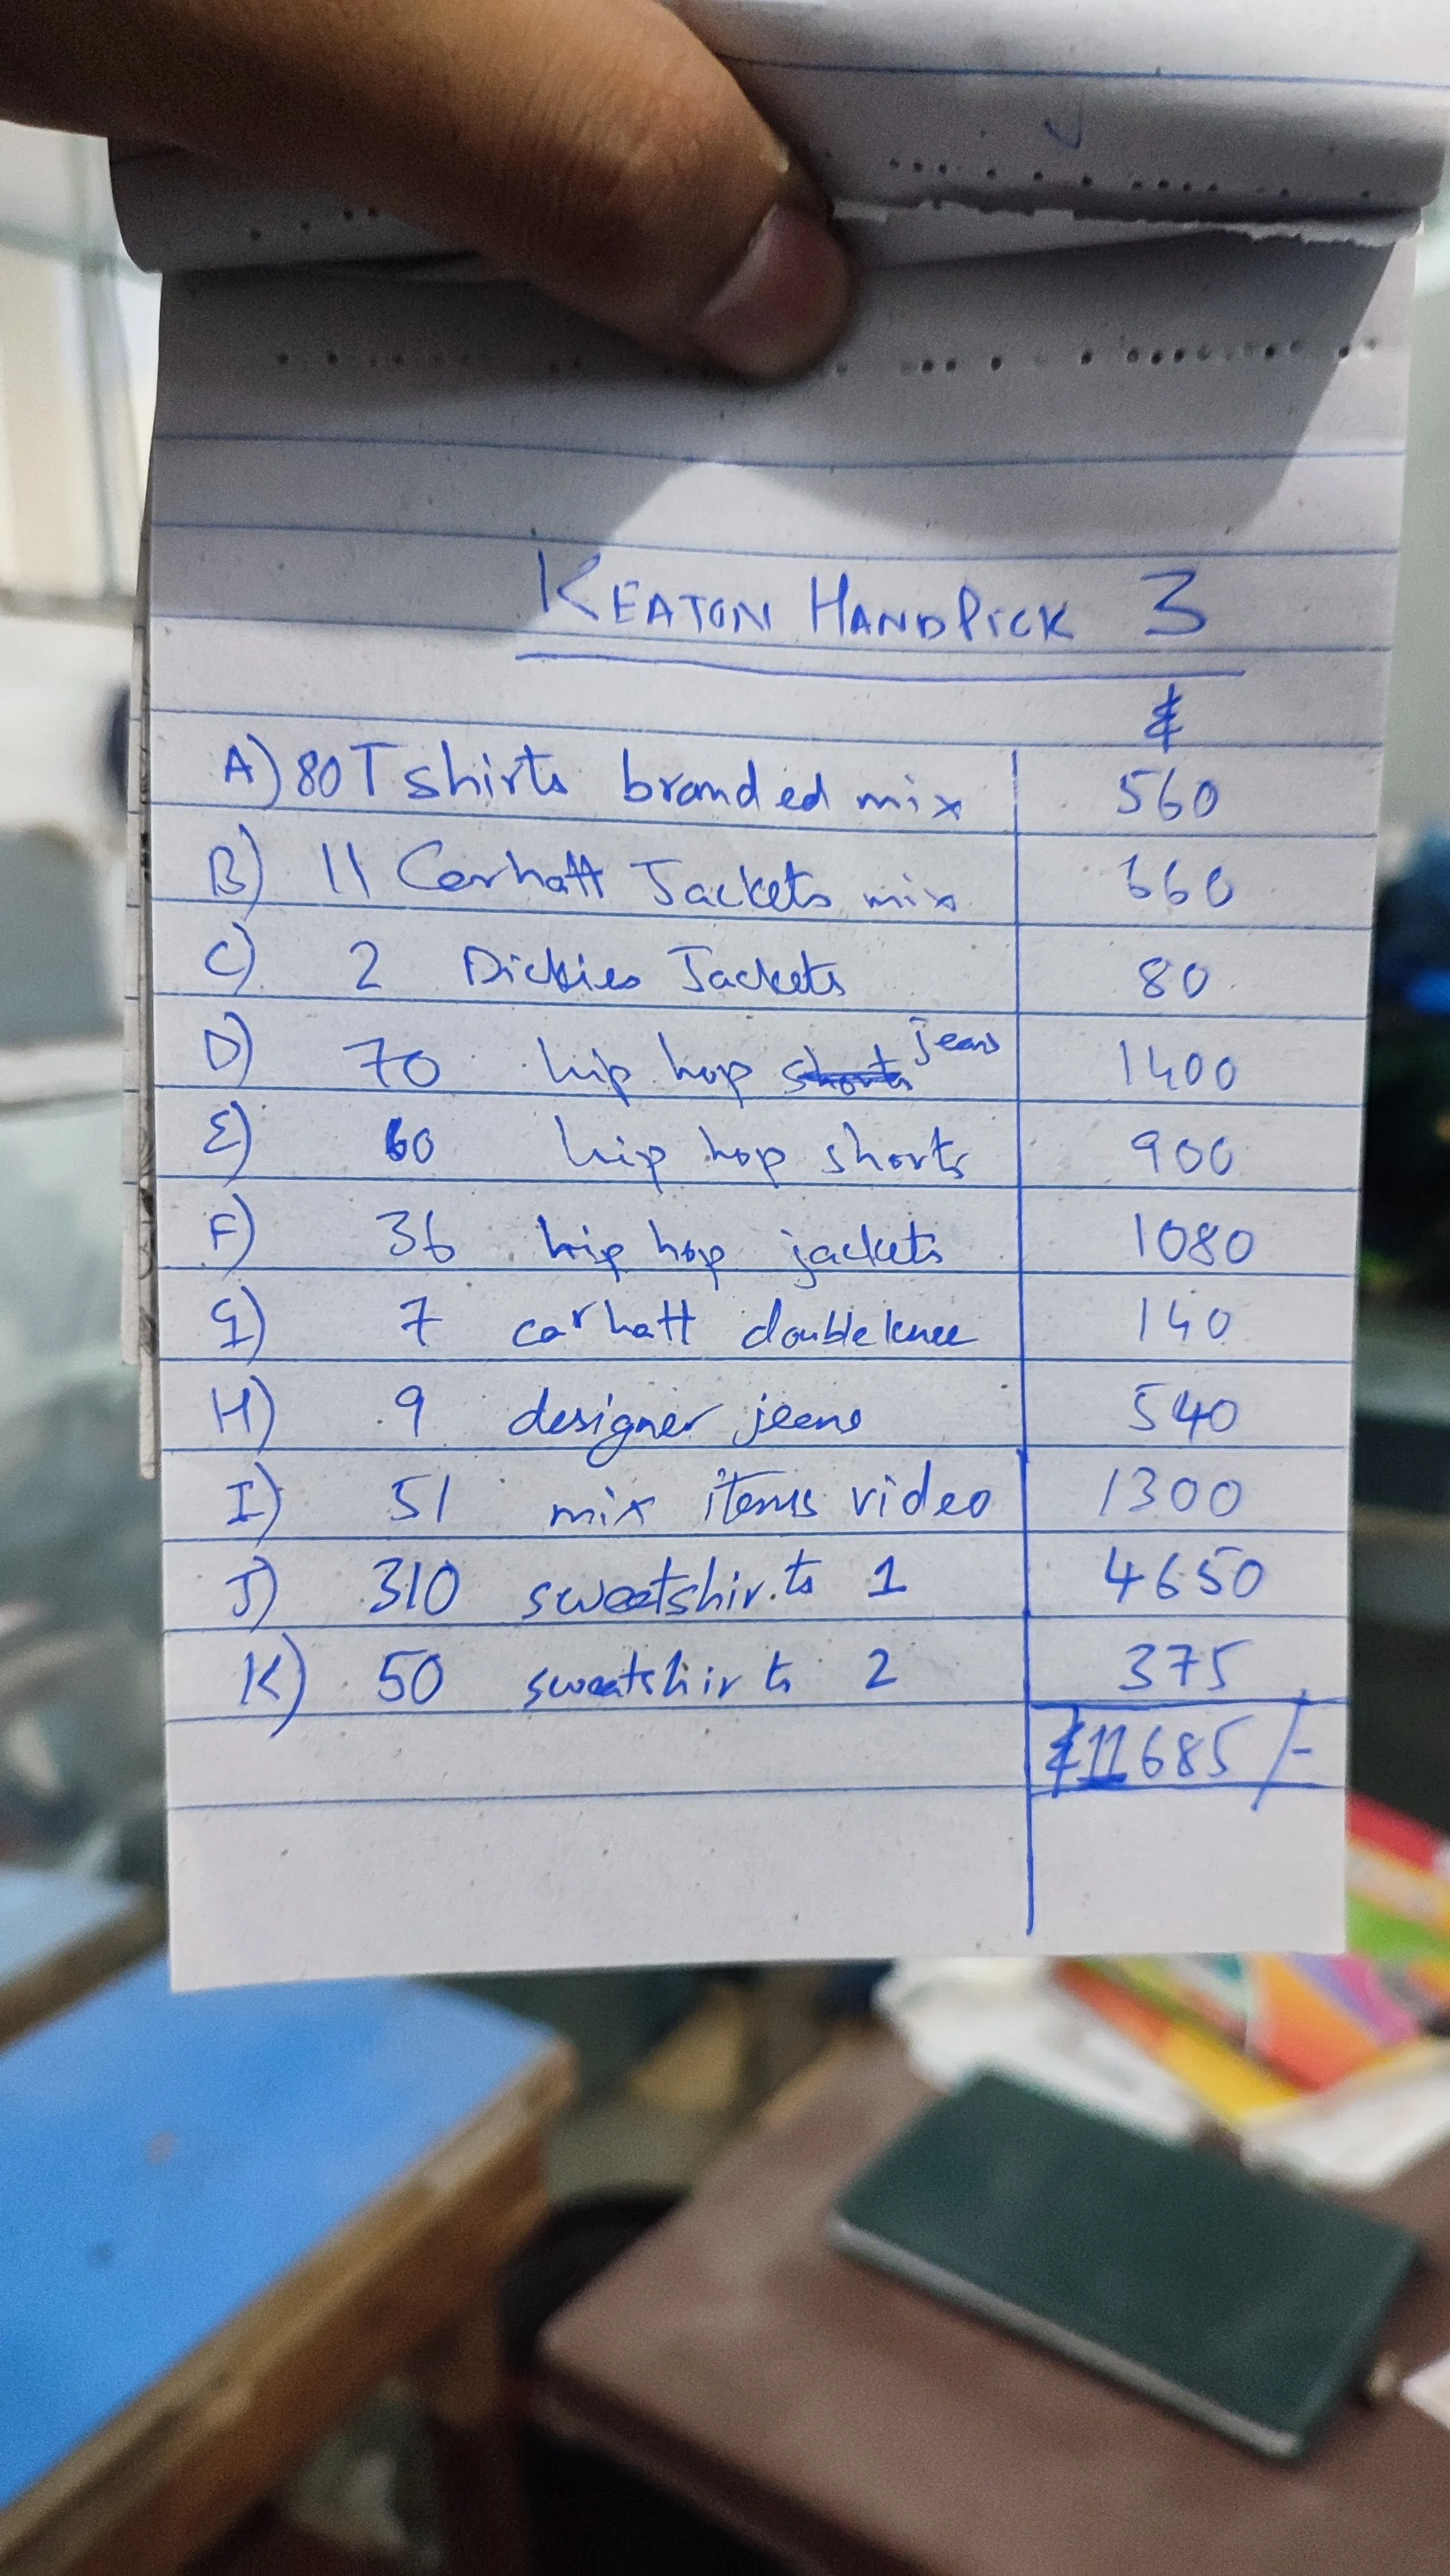 KEATON HANDPICK 3
£
A) 80 T shirts branded mix 560
B) 11 Carhatt Jackets mix 660
C) 2 Dickies Jackets 80
D) 70 hip hop shorts jeans 1400
E) 60 hip hop shorts 900
F) 36 hip hop jackets 1080
G) 7 carhatt double knee 140
H) 9 designer jeans 540
I) 51 mix items video 1300
J) 310 sweatshirts 1 4650
K) 50 sweatshirts 2 375
£11685/-